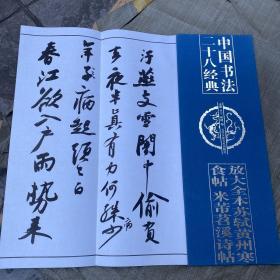 中国书法
二十八经典
放大全本苏轼黄州寒
食帖 米芾苕溪诗帖
污燕支雪闇中偷負
去夜半真有力何殊病少
年子病起頭已白
春江欲入戶雨勢來